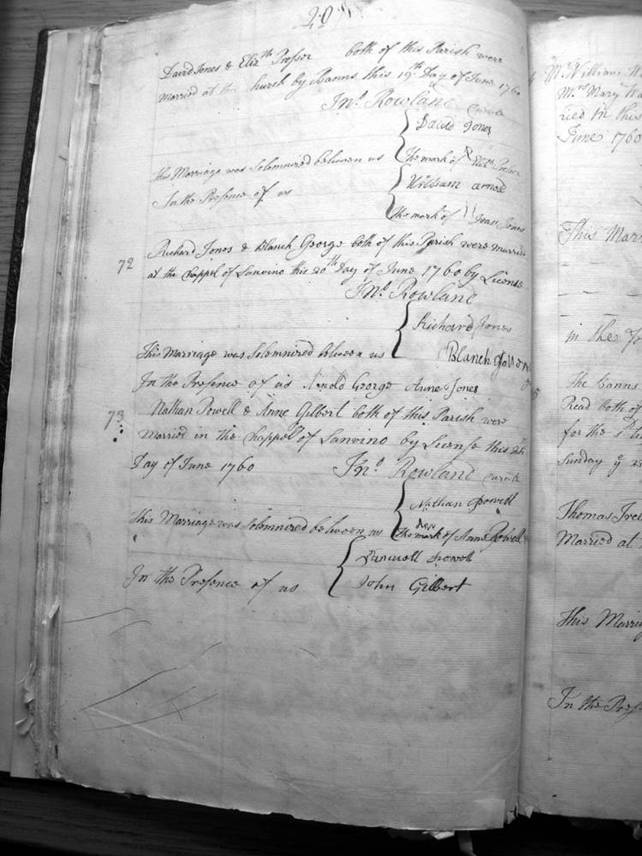 20
David Jones & Eliz.th Prosser both of this Parish were
Married at the hurch by Banns this 19th Day of June 1760
Jn.o Rowland Curate
David Jones
This Marriage was Solemnized between us The mark of
In the Presence of us William
The mark of Joan Jones
72 Richard Jones & Blanch George both of this Parish were Married
at the Chappel of Lanvino this 20th Day of June 1760 by License
Jn.o Rowland
Richard Jones
This Marriage was Solemnized between us Blanch
In the Presence of us Arnold George Anne Jones
73 Nathan Powell & Anne Gilbert both of this Parish were
Married in the Chappel of Lanvino by License this
Day of June 1760 Jn.o Rowland Curate
Nathan Powell
This Marriage was Solemnized between us The mark of Anne Powell
Powell
In the Presence of us John Gilbert
Mr William
Mrs Mary
ried in this
June 1760
This Marr
in the
The Banns
Read both of
for the
Sunday ye
Thomas
Married at
This Marri
In the Pres